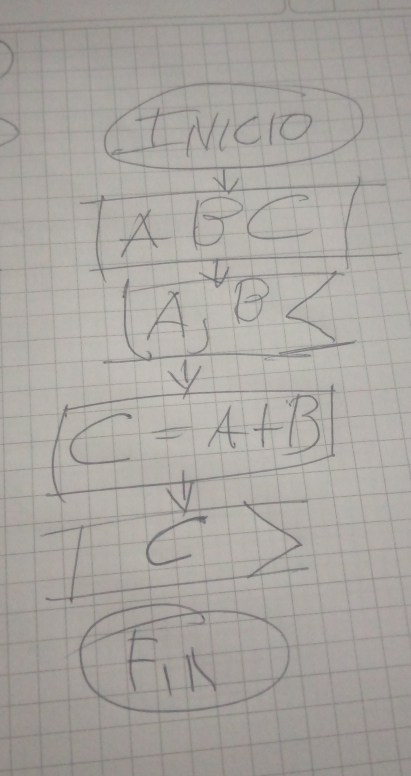 INICIO
A B C
A, B
C = A+B
C
FIN